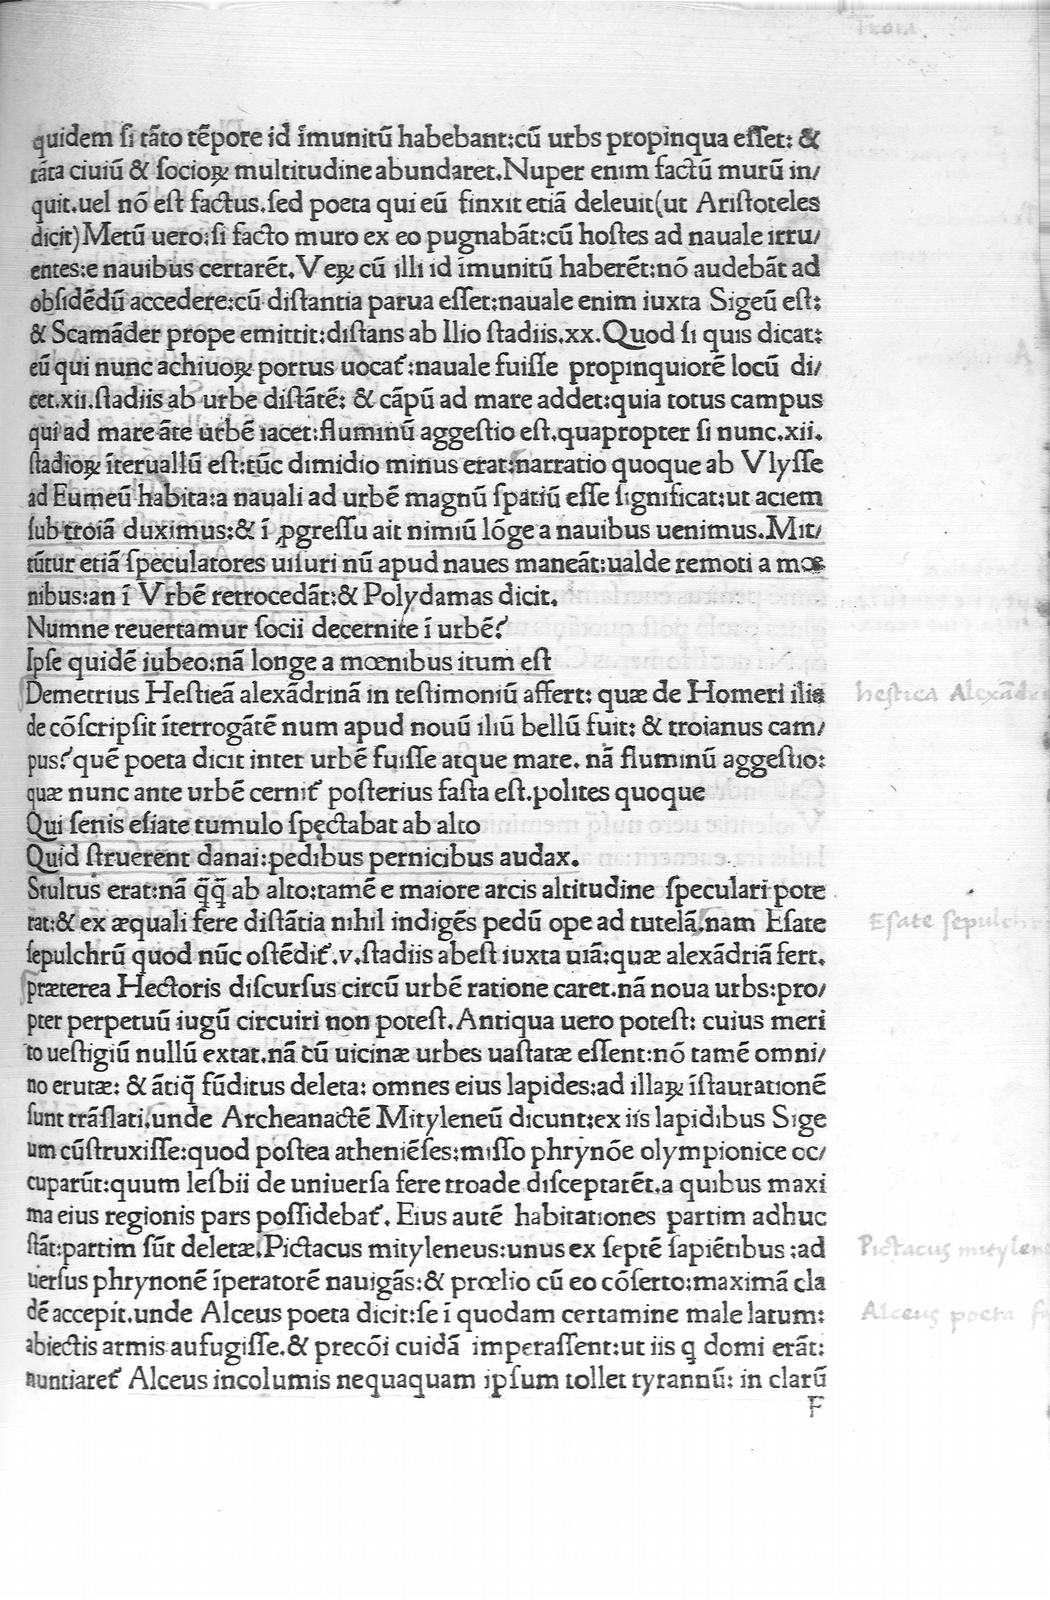 TROIA.
quidem ſi tãto tẽpore id ĩmunitũ habebant:cũ urbs propinqua eſſet: &
tãta ciuiũ & ſocioꝝ multitudine abundaret.Nuper enim factũ murũ in/
quit.uel nõ eſt factus.ſed poeta qui eũ finxit etiã deleuit(ut Ariſtoteles
dicit)Metũ uero:ſi facto muro ex eo pugnabãt:cũ hoſtes ad nauale irru/
entes:e nauibus certarẽt.Veꝝ cũ illi id ĩmunitũ haberẽt:nõ audebãt ad
obſidẽdũ accedere:cũ diſtantia parua eſſet:nauale enim iuxta Sigeũ eſt:
& Scamãder prope emittit:diſtans ab Ilio ſtadiis.xx.Quod ſi quis dicat:
eũ qui nunc achiuoꝝ portus uocat᷑:nauale fuiſſe propinquiorẽ locũ di/
cet.xii.ſtadiis ab urbe diſtãtẽ: & cãpũ ad mare addet:quia totus campus
qui ad mare ãte urbẽ iacet:fluminũ aggeſtio eſt.quapropter ſi nunc.xii.
ſtadioꝝ ĩteruallũ eſt:tũc dimidio minus erat:narratio quoque ab Vlyſſe
ad Eumeũ habita:a nauali ad urbẽ magnũ ſpatiũ eſſe ſignificat:ut aciem
ſub troiã duximus:& ĩ ꝓgreſſu ait nimiũ lõge a nauibus uenimus.Mit/
tũtur etiã ſpeculatores uiſuri nũ apud naues maneãt:ualde remoti a mœ
nibus:an ĩ Vrbẽ retrocedãt:& Polydamas dicit.
Numne reuertamur ſocii decernite ĩ urbẽ?
Ipſe quidẽ iubeo:nã longe a mœnibus itum eſt
Demetrius Heſtieã alexãdrinã in teſtimoniũ affert: quæ de Homeri ilia
de cõſcripſit ĩterrogãtẽ num apud nouũ iliũ bellũ fuit: & troianus cam/
pus? quẽ poeta dicit inter urbẽ fuiſſe atque mare. nã fluminũ aggeſtio:
quæ nunc ante urbẽ cernit᷑ poſterius faſta eſt.polites quoque
Qui ſenis eſiate tumulo ſpęctabat ab alto
Quid ſtruerent danai:pedibus pernicibus audax.
Stultus erat:nã q̃q̃ ab alto:tamẽ e maiore arcis altitudine ſpeculari pote
rat:& ex æquali fere diſtãtia nihil indigẽs pedũ ope ad tutelã.nam Eſate
ſepulchrũ quod nũc oſtẽdit᷑.v.ſtadiis abeſt iuxta uiã:quæ alexãdriã fert.
præterea Hectoris diſcurſus circũ urbẽ ratione caret.nã noua urbs:pro/
pter perpetuũ iugũ circuiri non poteſt.Antiqua uero poteſt: cuius meri
to ueſtigiũ nullũ extat.nã cũ uicinæ urbes uaſtatæ eſſent:nõ tamẽ omni/
no erutæ: & ãtiq̃ fũditus deleta: omnes eius lapides:ad illaꝝ ĩſtaurationẽ
ſunt trãſlati.unde Archeanactẽ Mityleneũ dicunt:ex iis lapidibus Sige
um cũſtruxiſſe:quod poſtea atheniẽſes:miſſo phrynõe olympionice oc/
cuparũt:quum leſbii de uniuerſa fere troade diſceptarẽt.a quibus maxi
ma eius regionis pars poſſidebat᷑. Eius autẽ habitationes partim adhuc
ſtãt:partim ſũt deletæ.Pictacus mityleneus:unus ex ſeptẽ ſapiẽtibus :ad
uerſus phrynonẽ ĩperatorẽ nauigãs:& prœlio cũ eo cõſerto:maximã cla
dẽ accepit.unde Alceus poeta dicit:ſe ĩ quodam certamine male latum:
abiectis armis aufugiſſe.& precõi cuidã imperaſſent:ut iis q domi erãt:
nuntiaret᷑ Alceus incolumis nequaquam ipſum tollet tyrannũ: in clarũ
F
heſtiea Alexãd
Eſate ſepulch
Pictacus mitylen
Alceus poeta